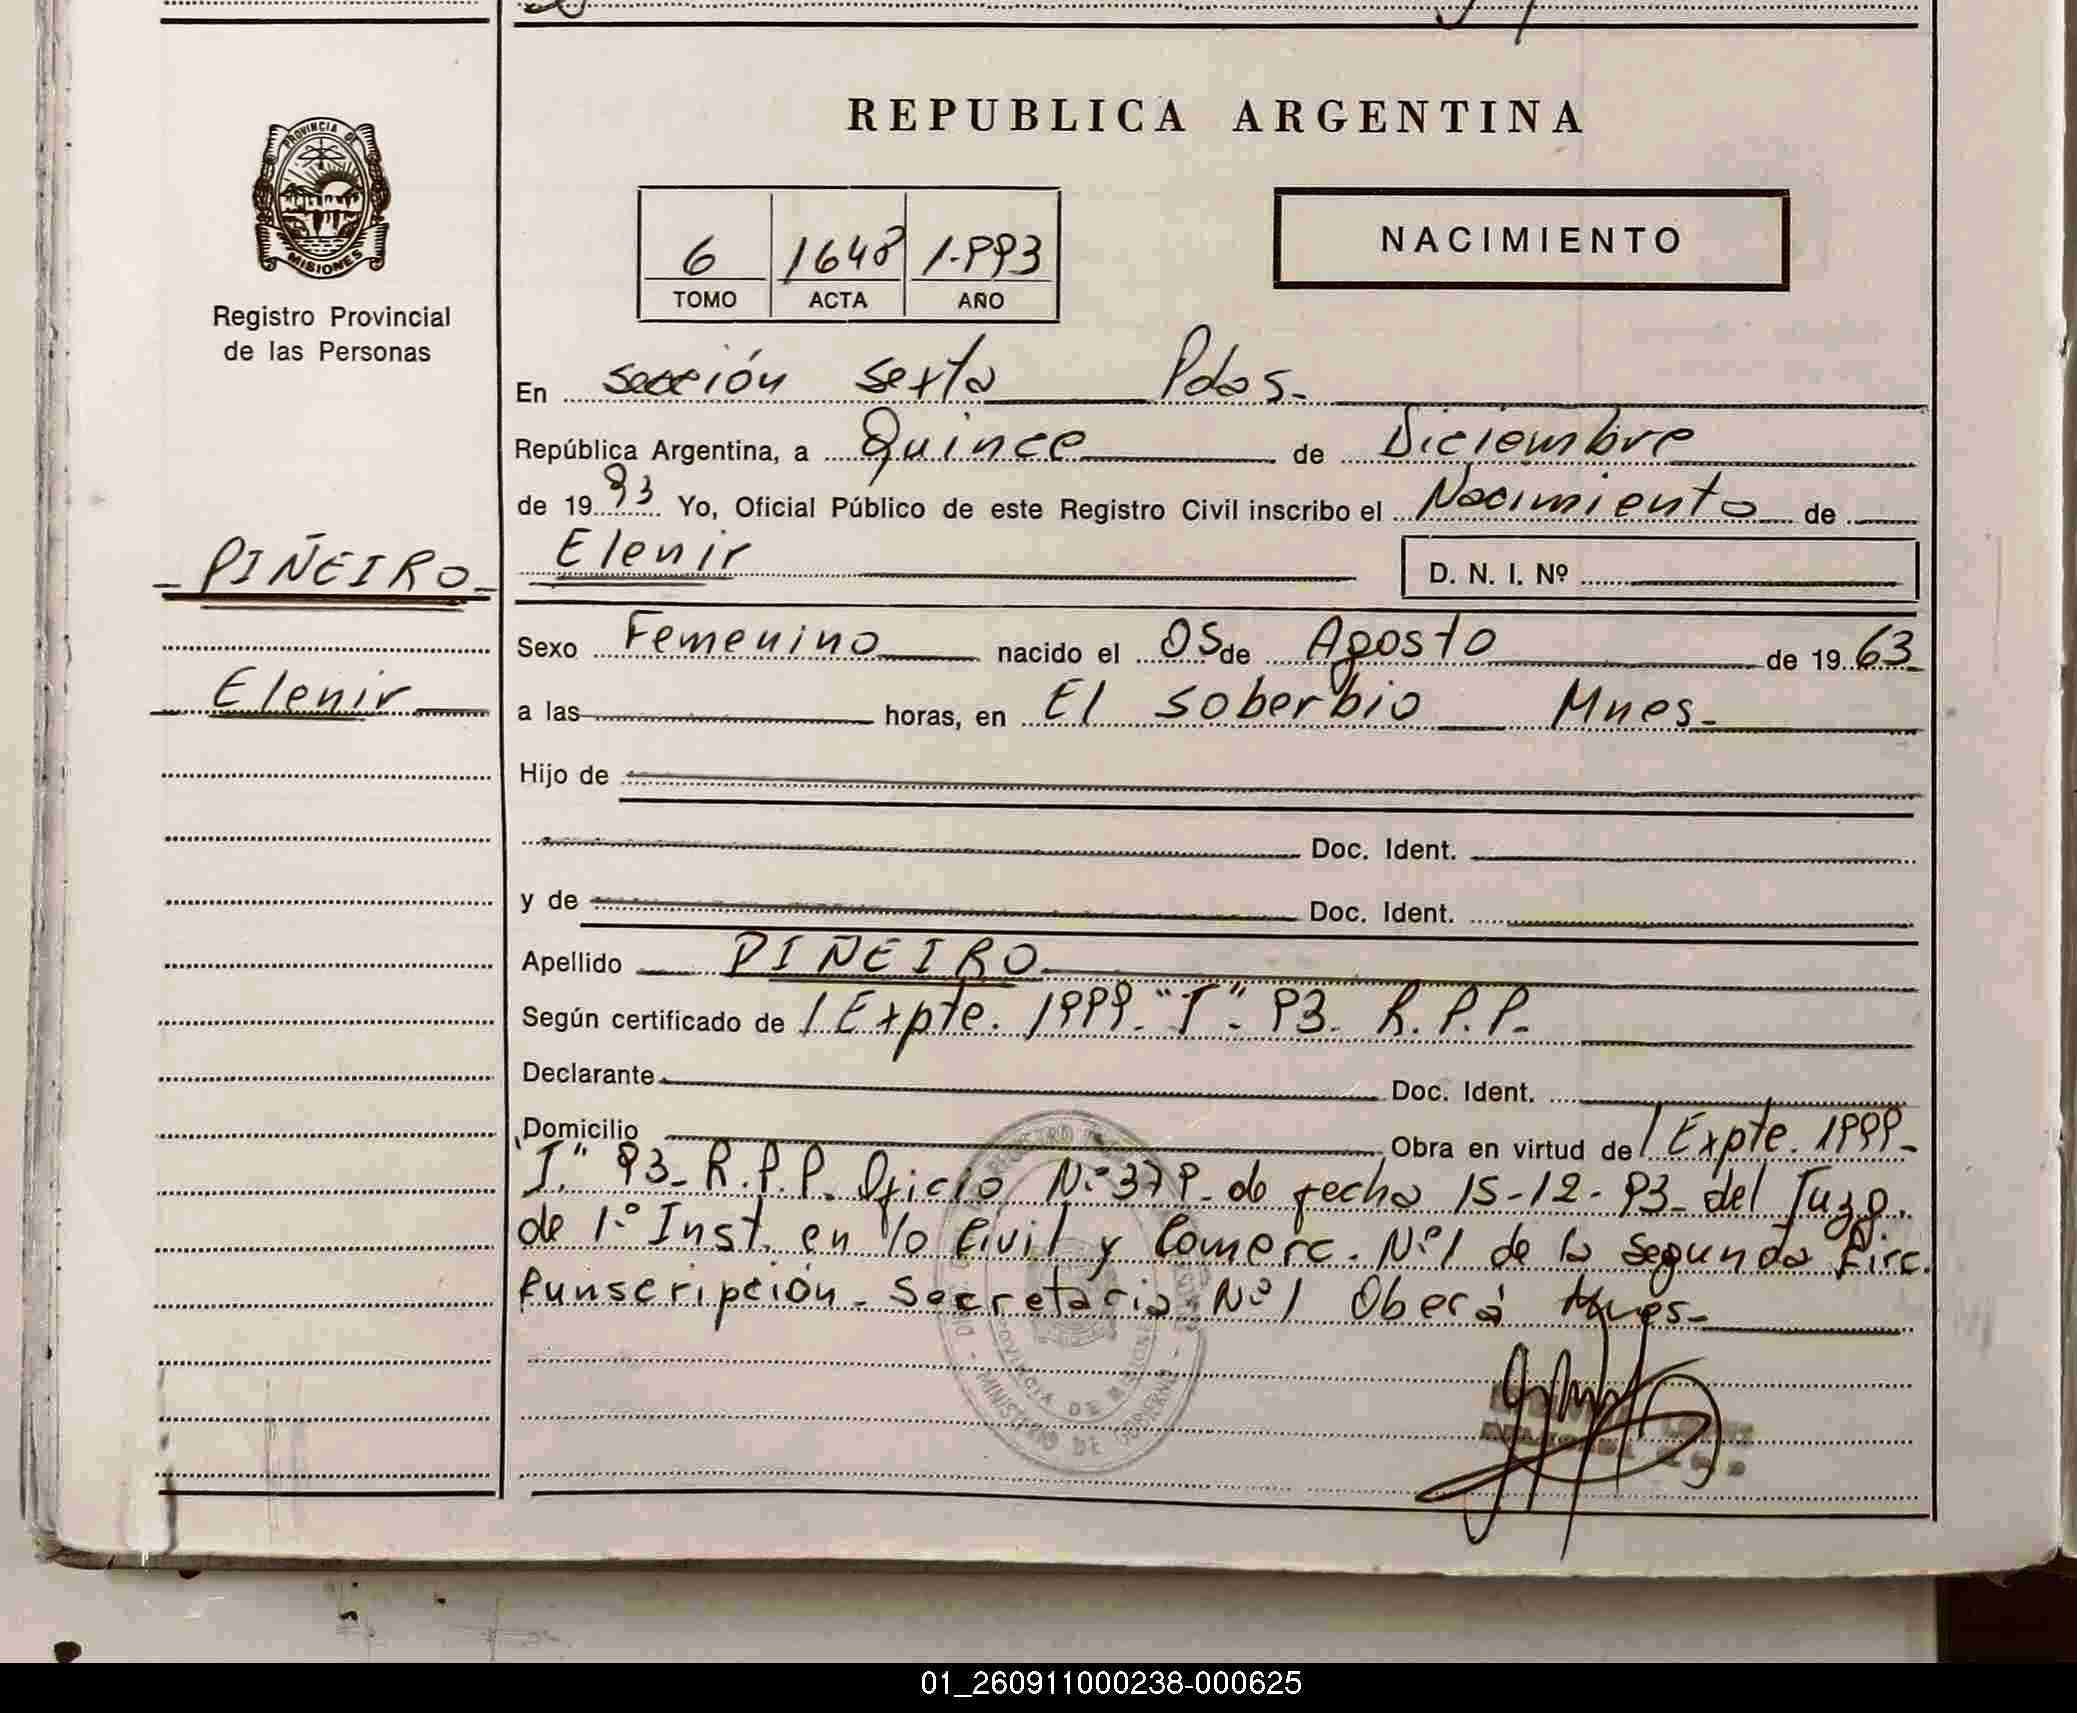 REPUBLICA ARGENTINA
PROVINCIA DE
MISIONES
Registro Provincial
de las Personas
6 1648 1.993
TOMO ACTA AÑO
NACIMIENTO
En sección sexta Pdas.
República Argentina, a Quince de Diciembre
de 19 93 Yo, Oficial Público de este Registro Civil inscribo el Nacimiento de
PIÑEIRO
Elenir
D. N. I. Nº
Sexo Femenino nacido el 05 de Agosto de 19 63
Elenir
a las horas, en El soberbio Mnes.
Hijo de
Doc. Ident.
y de Doc. Ident.
Apellido PIÑEIRO
Según certificado de / Expte. 1999. "I". 93. R.P.P.
Declarante Doc. Ident.
Domicilio Obra en virtud de / Expte. 1999-
"I." 93- R.P.P. Oficio N.º 379- de fecha 15-12-93- del Juzg.
de 1.º Inst. en lo Civil y Comerc. Nº1 de la Segunda Circ.
cunscripción. Secretaria Nº1 Oberá Mnes-
PROVINCIA DE MISIONES
MINISTERIO DE GOBIERNO
01_260911000238-000625